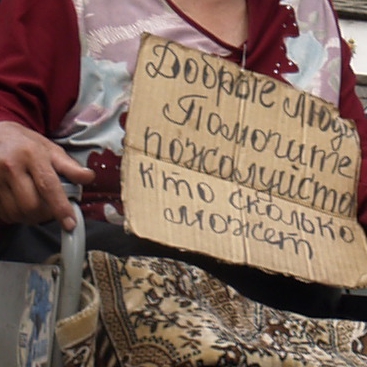 Добрые люди
Памогите
пожалуйста
кто сколько
может